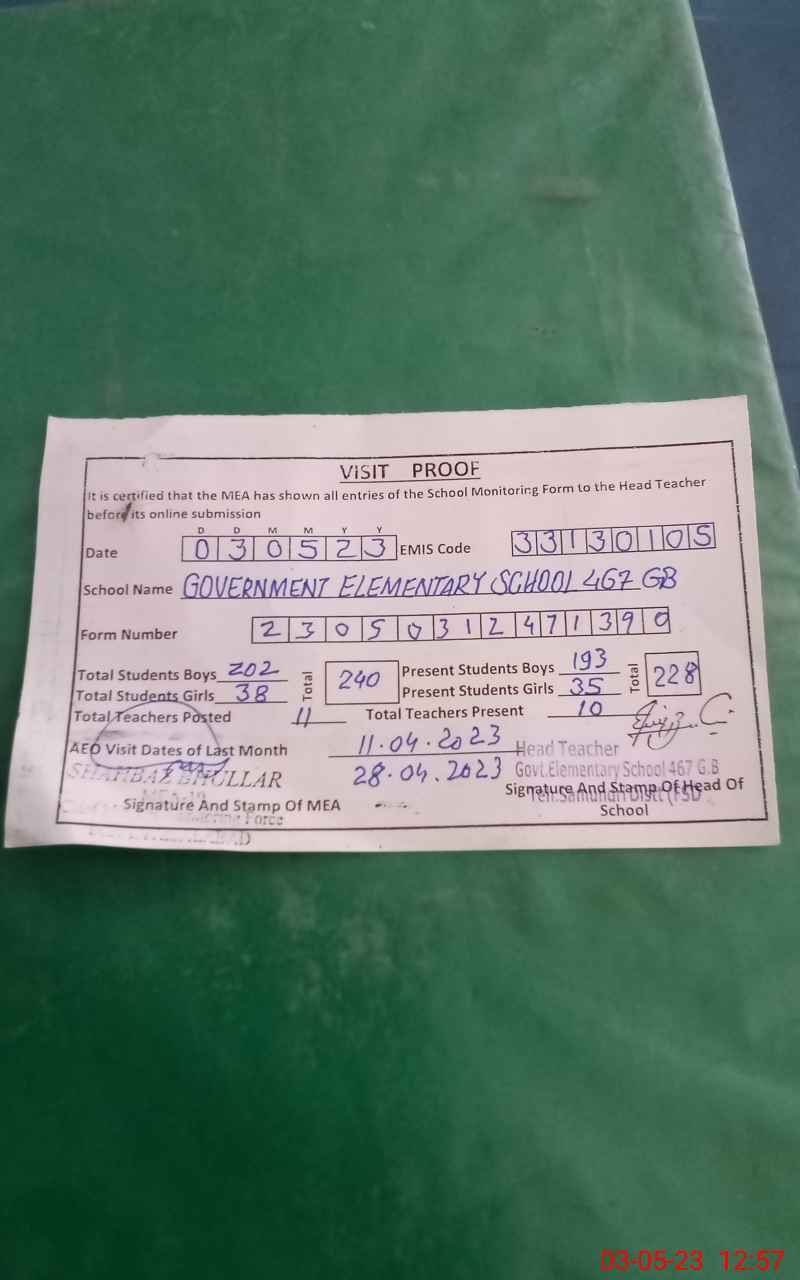 VISIT PROOF
It is certified that the MEA has shown all entries of the School Monitoring Form to the Head Teacher
before its online submission
D D M M Y Y
Date 0 3 0 5 2 3 EMIS Code 3 3 1 3 0 1 0 5
School Name GOVERNMENT ELEMENTARY SCHOOL 467 GB
Form Number 2 3 0 5 0 3 1 2 4 7 1 3 9 0
Total Students Boys 202 Total 240 Present Students Boys 193 Total 228
Total Students Girls 38 Present Students Girls 35
Total Teachers Posted 11 Total Teachers Present 10
AEO Visit Dates of Last Month 11.04.2023 Head Teacher
SHAHBAZ BHULLAR 28.04.2023 Govt.Elementary School 467 G.B
Signature And Stamp Of MEA Signature And Stamp Of Head Of
School
Teh.Samundri Distt (FSD
Force
03-05-23 12:57